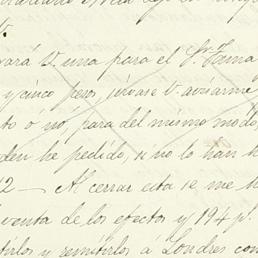 V.
vará V. una para el Sr. Tama
y cinco pesos, sírvase V. avisarme
to o no, para del mismo modo,
den he pedido, si no lo han
2 — Al cerrar esta se me h
venta de los efectos y 194 p.
tirlos y remitirlos a Londres con